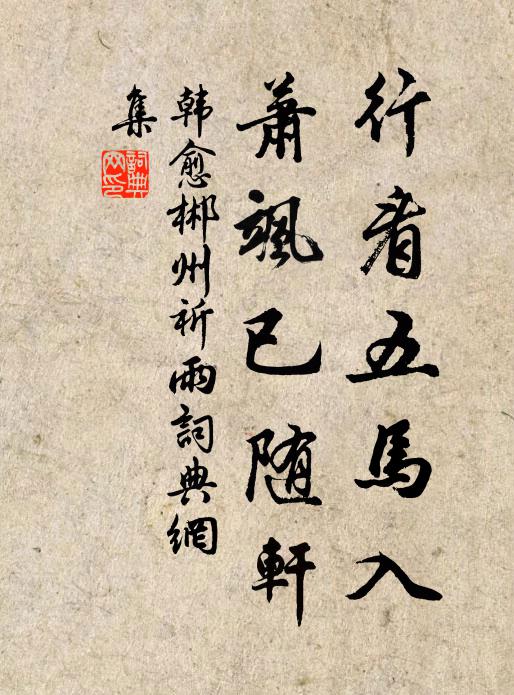 行看五馬入
蕭颯已随軒
韓愈郴州祈雨詞典網
集
詞典網印